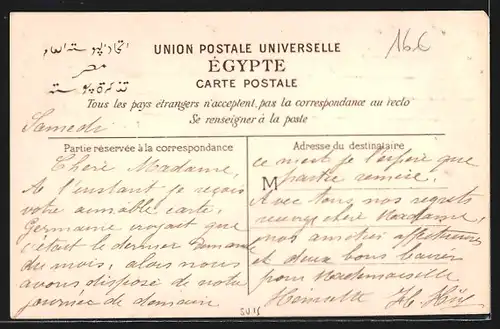 UNION POSTALE UNIVERSELLE
ÉGYPTE
CARTE POSTALE
مصر
Tous les pays étrangers n'acceptent pas la correspondance au recto
Se renseigner à la poste
Samedi
Partie réservée à la correspondance
Chère Madame,
A l'instant je reçois
votre aimable carte.
Germaine croyait que
c'était le dernier
du mois, alors nous
avons disposé de notre
journée de demain
Adresse du destinataire
M
ce n'est je l'espère que
partie remise.
Avec tous nos regrets
recevez chère Madame,
nos amitiés
et deux bons baisers
pour Mademoiselle
Henriette